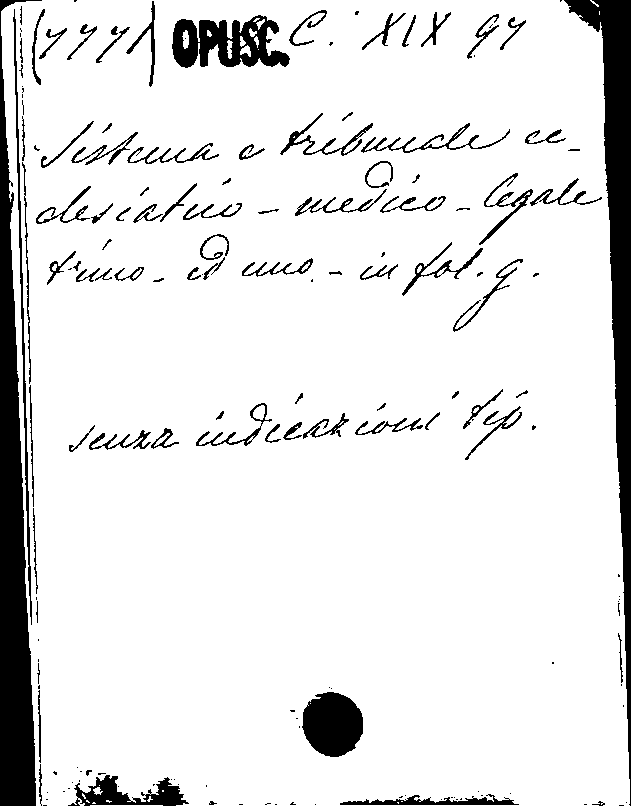 (7771) OPUSC. C. XIX 97
Sistema e tribunale ec-
clesiatico - medico - legale
trino - ed uno. - in fol. g.
senza indicazioni tip.